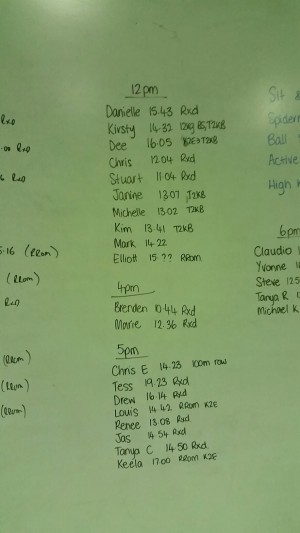 RxD
.00 RxD
RxD
5.16 (RRom)
(RRom)
RxD
(RRom)
(RRom)
(RRom)
12pm
Danielle 15.43 Rxd
Kirsty 14.32 12kg BS, T2KB
Dee 16.05 K2E→T2KB
Chris 12.04 Rxd
Stuart 11.04 Rxd
Janine 13.07 T2KB
Michelle 13.02 T2KB
Kim 13.41 T2KB
Mark 14.22
Elliott 15.?? RRom
4pm
Brenden 10.44 Rxd
Marie 12.36 Rxd
5pm
Chris E 14.23 100m row
Tess 19.23 Rxd
Drew 16.14 Rxd
Louis 14.42 RRom K2E
Renee 13.08 Rxd
Jas 14.54 Rxd
Tanya C 14.50 Rxd
Keela 17.00 RRom K2E
Sit
Spider
Ball
Active
High
6pm
Claudio
Yvonne
Steve 12.5
Tanya R
Michael K